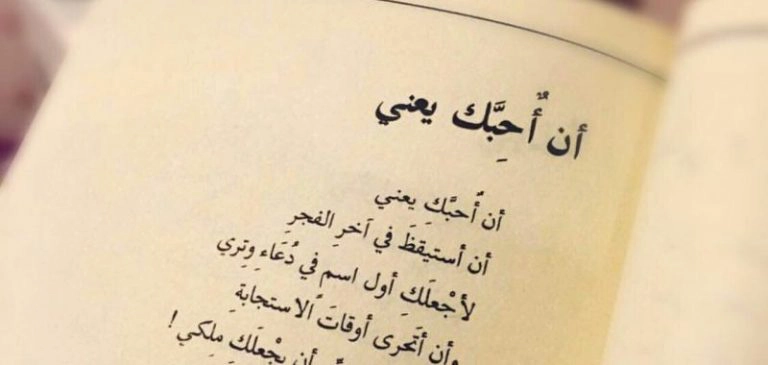 أن أُحِبَّك يعني
أن أُحبَّكِ يعني
أن أستيقظَ في آخرِ الفجرِ
لأجْعلَكِ أول اسم في دُعَاءِ وِتِري
وأن أتَحرى أوقاتَ الاستجابةِ
أن يجْعلَكِ ملكي!